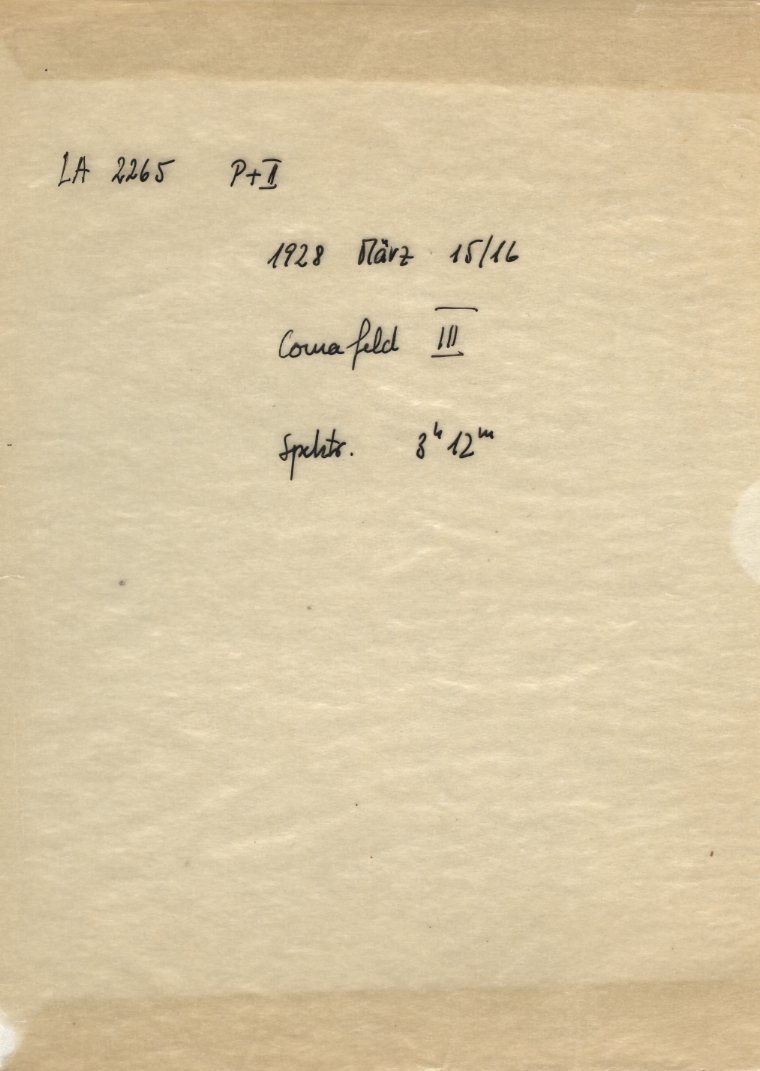 LA 2265 P+II
1928 März 15/16
Comafeld III
Spektr. 3ʰ 12ᵐ